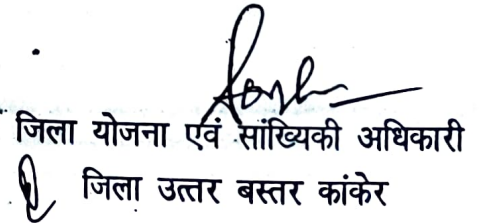 जिला योजना एवं सांख्यिकी अधिकारी
जिला उत्तर बस्तर कांकेर